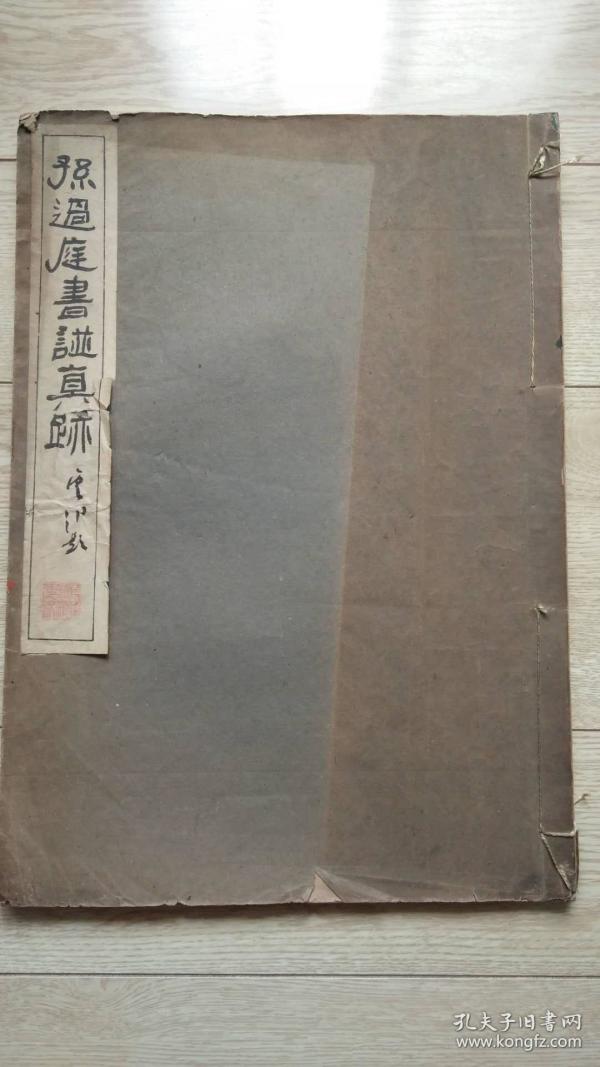 孫過庭書譜真跡
題
孔夫子旧書网
www.kongfz.com